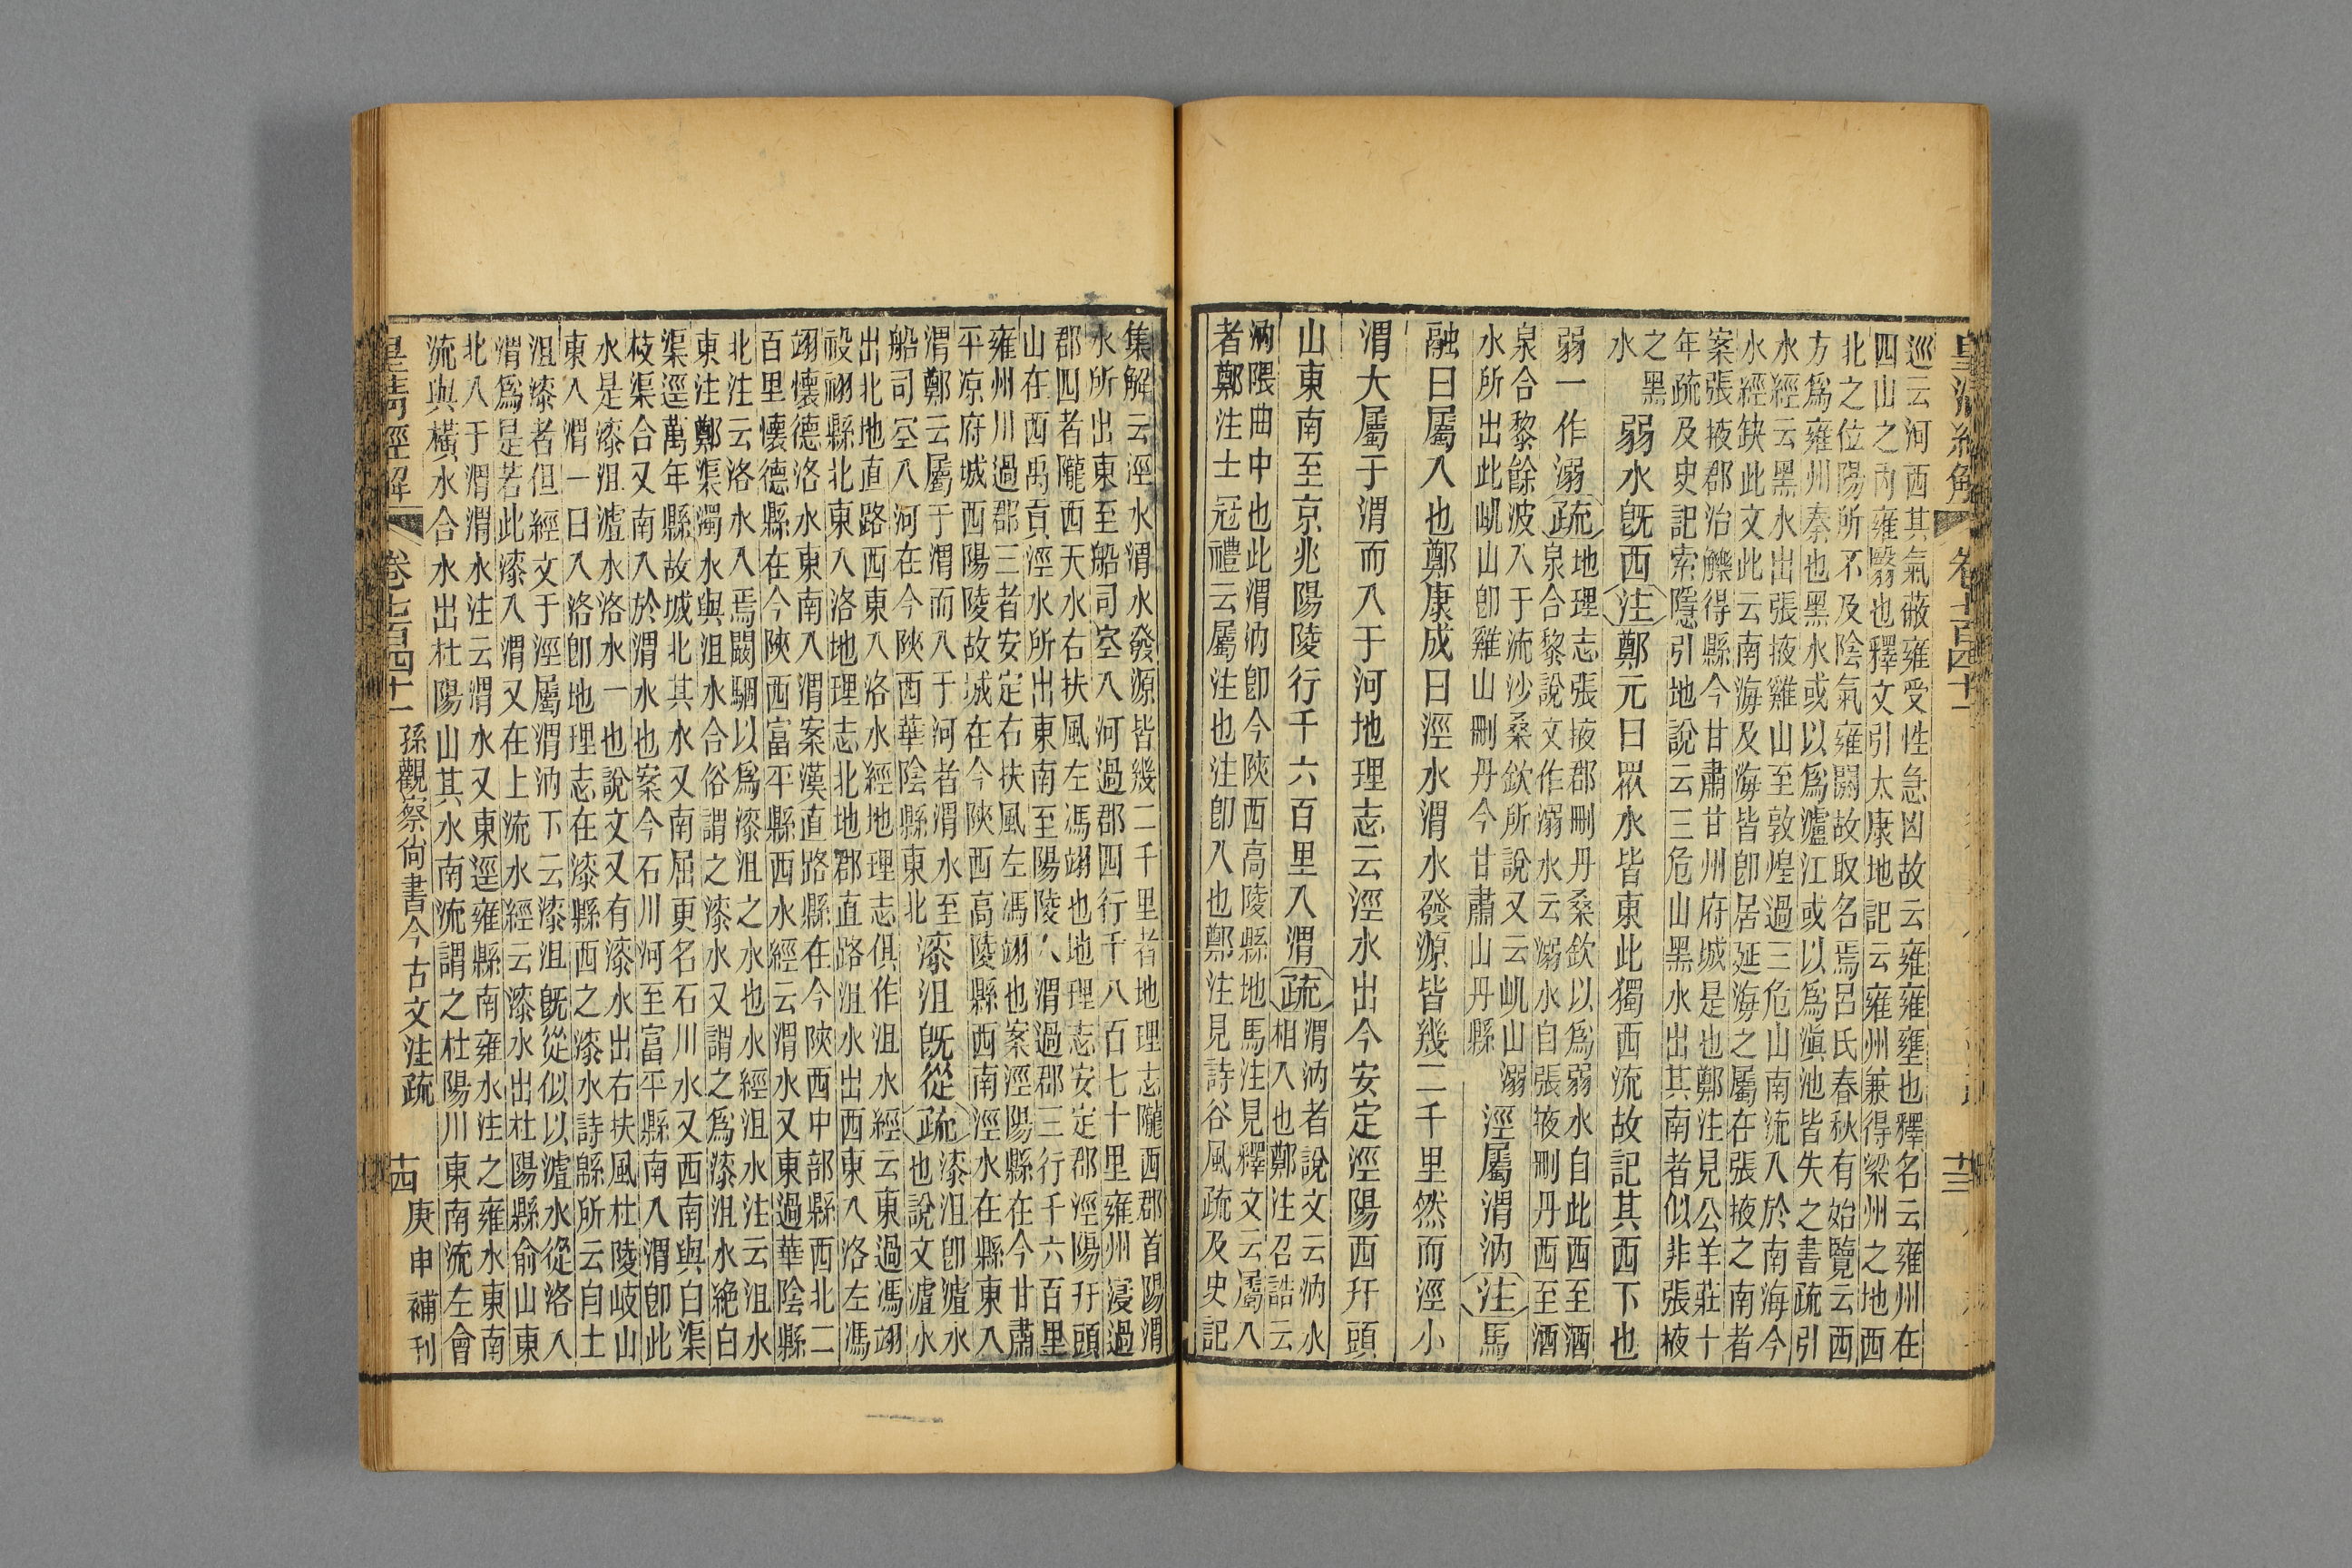 皇清經解
卷七百四十一
十三
巡云河西其氣蔽雍受性急凶故云雍雍壅也釋名云雍州在
四山之內雍翳也釋文引太康地記云雍州兼得梁州之地西
北之位陽所不及陰氣雍閼故取名焉呂氏春秋有始覽云西
方爲雍州秦也黑水或以爲瀘江或以爲滇池皆失之書疏引
水經云黑水出張掖雞山至敦煌過三危山南流入於南海今
水經缺此文此云南海及海皆卽居延海之屬在張掖之南者
案張掖郡治觻得縣今甘肅甘州府城是也鄭注見公羊莊十
年疏及史記索隱引地說云三危山黑水出其南者似非張掖
之黑
水
弱水旣西注鄭元曰眾水皆東此獨西流故記其西下也
弱一作溺疏地理志張掖郡刪丹桑欽以爲弱水自此西至酒
泉合黎說文作溺水云溺水自張掖刪丹西至酒
泉合黎餘波入于流沙桑欽所說又云㞦山溺
水所出此㞦山卽雞山刪丹今甘肅山丹縣
涇屬渭汭注馬
融曰屬入也鄭康成曰涇水渭水發源皆幾二千里然而涇小
渭大屬于渭而入于河地理志云涇水出今安定涇陽西幵頭
山東南至京兆陽陵行千六百里入渭疏渭汭者說文云汭水
相入也鄭注召誥云
汭隈曲中也此渭汭卽今陝西高陵縣地馬注見釋文云屬入
者鄭注士冠禮云屬注也注卽入也鄭注見詩谷風疏及史記
集解云涇水渭水發源皆幾二千里者地理志隴西郡首陽渭
水所出東至船司空入河過郡四行千八百七十里雍州寖過
郡四者隴西天水右扶風左馮翊也地理志安定郡涇陽幵頭
山在西禹貢涇水所出東南至陽陵入渭過郡三行千六百里
雍州川過郡三者安定右扶風左馮翊也案涇陽縣在今甘肅
平凉府城西陽陵故城在今陝西高陵縣西南涇水在縣東入
渭鄭云屬于渭而入于河者渭水至
船司空入河在今陝西華陰縣東北
漆沮旣從疏漆沮卽瀘水
也說文瀘水
出北地直路西東入洛水經地理志俱作沮水經云東過馮翊
祋祤縣北東入洛地理志北地郡直路沮水出西東入洛左馮
翊懷德洛水東南入渭案漢直路縣在今陝西中部縣西北二
百里懷德縣在今陝西富平縣西水經云渭水又東過華陰縣
北注云洛水入焉闞駰以爲漆沮之水也水經沮水注云沮水
東注鄭渠濁水與沮水合俗謂之漆水又謂之爲漆沮水絶白
渠逕萬年縣故城北其水又南屈更名石川水又西南與白渠
枝渠合又南入於渭水也案今石川河至富平縣南入渭卽此
水是漆沮瀘水洛水一也說文又有漆水出右扶風杜陵岐山
東入渭一曰入洛卽地理志在漆縣西之漆水詩緜所云自土
沮漆者但經文于涇屬渭汭下云漆沮旣從似以瀘水從洛入
渭爲是若此漆入渭又在上流水經云漆水出杜陽縣俞山東
北入于渭渭水注云渭水又東逕雍縣南雍水注之雍水東南
流與橫水合水出杜陽山其水南流謂之杜陽川東南流左會
皇清經解
卷七百四十一
孫觀察尚書今古文注疏
十四
庚申補刊